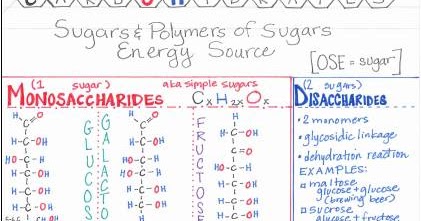 CARBOHYDRATES
Sugars & Polymers of Sugars
Energy Source
[OSE = sugar]
(1 sugar) aka simple sugars
MONOSACCHARIDES CxH2xOx
(2 sugars)
DISACCHARIDES
• 2 monomers
• glycosidic linkage
• dehydration reaction
EXAMPLES:
maltose
glucose + glucose
(brewing beer)
sucrose
glucose + fructose
GLUCOS
GALACTOS
FRUCTOSE
H O
C
H-C-OH
HO-C-H
H-C-OH
H-C-OH
H O
C
H-C-OH
HO-C-H
HO-C-H
H-C-OH
H
H-C-OH
C=O
HO-C-H
H-C-OH
H-C-OH